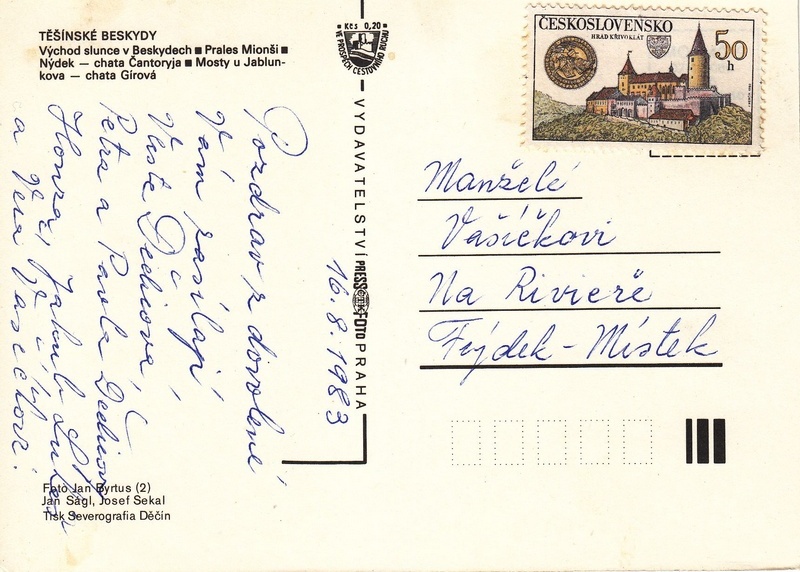 TĚŠÍNSKÉ BESKYDY
Východ slunce v Beskydech ■ Prales Mionší ■
Nýdek — chata Čantoryja ■ Mosty u Jablun-
kova — chata Gírová
Kčs 0,20
VE PROSPĚCH CESTOVNÍHO RUCHU
ČESKOSLOVENSKO
HRAD KŘIVOKLÁT
50
h
VYDAVATELSTVÍ PRESSFOTO PRAHA
16. 8. 1983
Pozdrav z dovolené
Vám zasílají
Petra a Pavla
Honza, Jakub
a Věra Vašíčkovi.
Manželé
Vašíčkovi
Na Rivieře
Frýdek-Místek
Foto Jan Byrtus (2)
Jan Ságl, Josef Sekal
Tisk Severografia Děčín